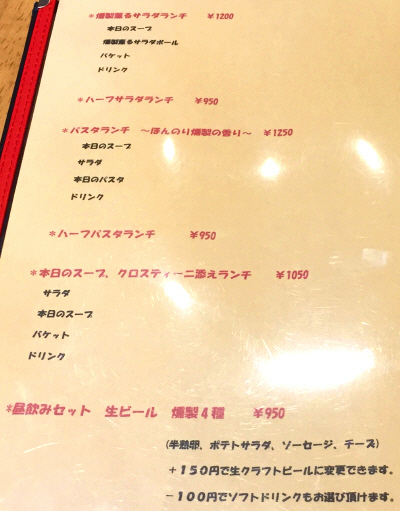 *燻製薫るサラダランチ ¥1200
本日のスープ
燻製薫るサラダボール
バケット
ドリンク
*ハーフサラダランチ ¥950
*パスタランチ 〜ほんのり燻製の香り〜 ¥1250
本日のスープ
サラダ
本日のパスタ
ドリンク
*ハーフパスタランチ ¥950
*本日のスープ、クロスティーニ添えランチ ¥1050
サラダ
本日のスープ
バケット
ドリンク
*昼飲みセット 生ビール 燻製4種 ¥950
(半熟卵、ポテトサラダ、ソーセージ、チーズ)
+150円で生クラフトビールに変更できます。
-100円でソフトドリンクもお選び頂けます。